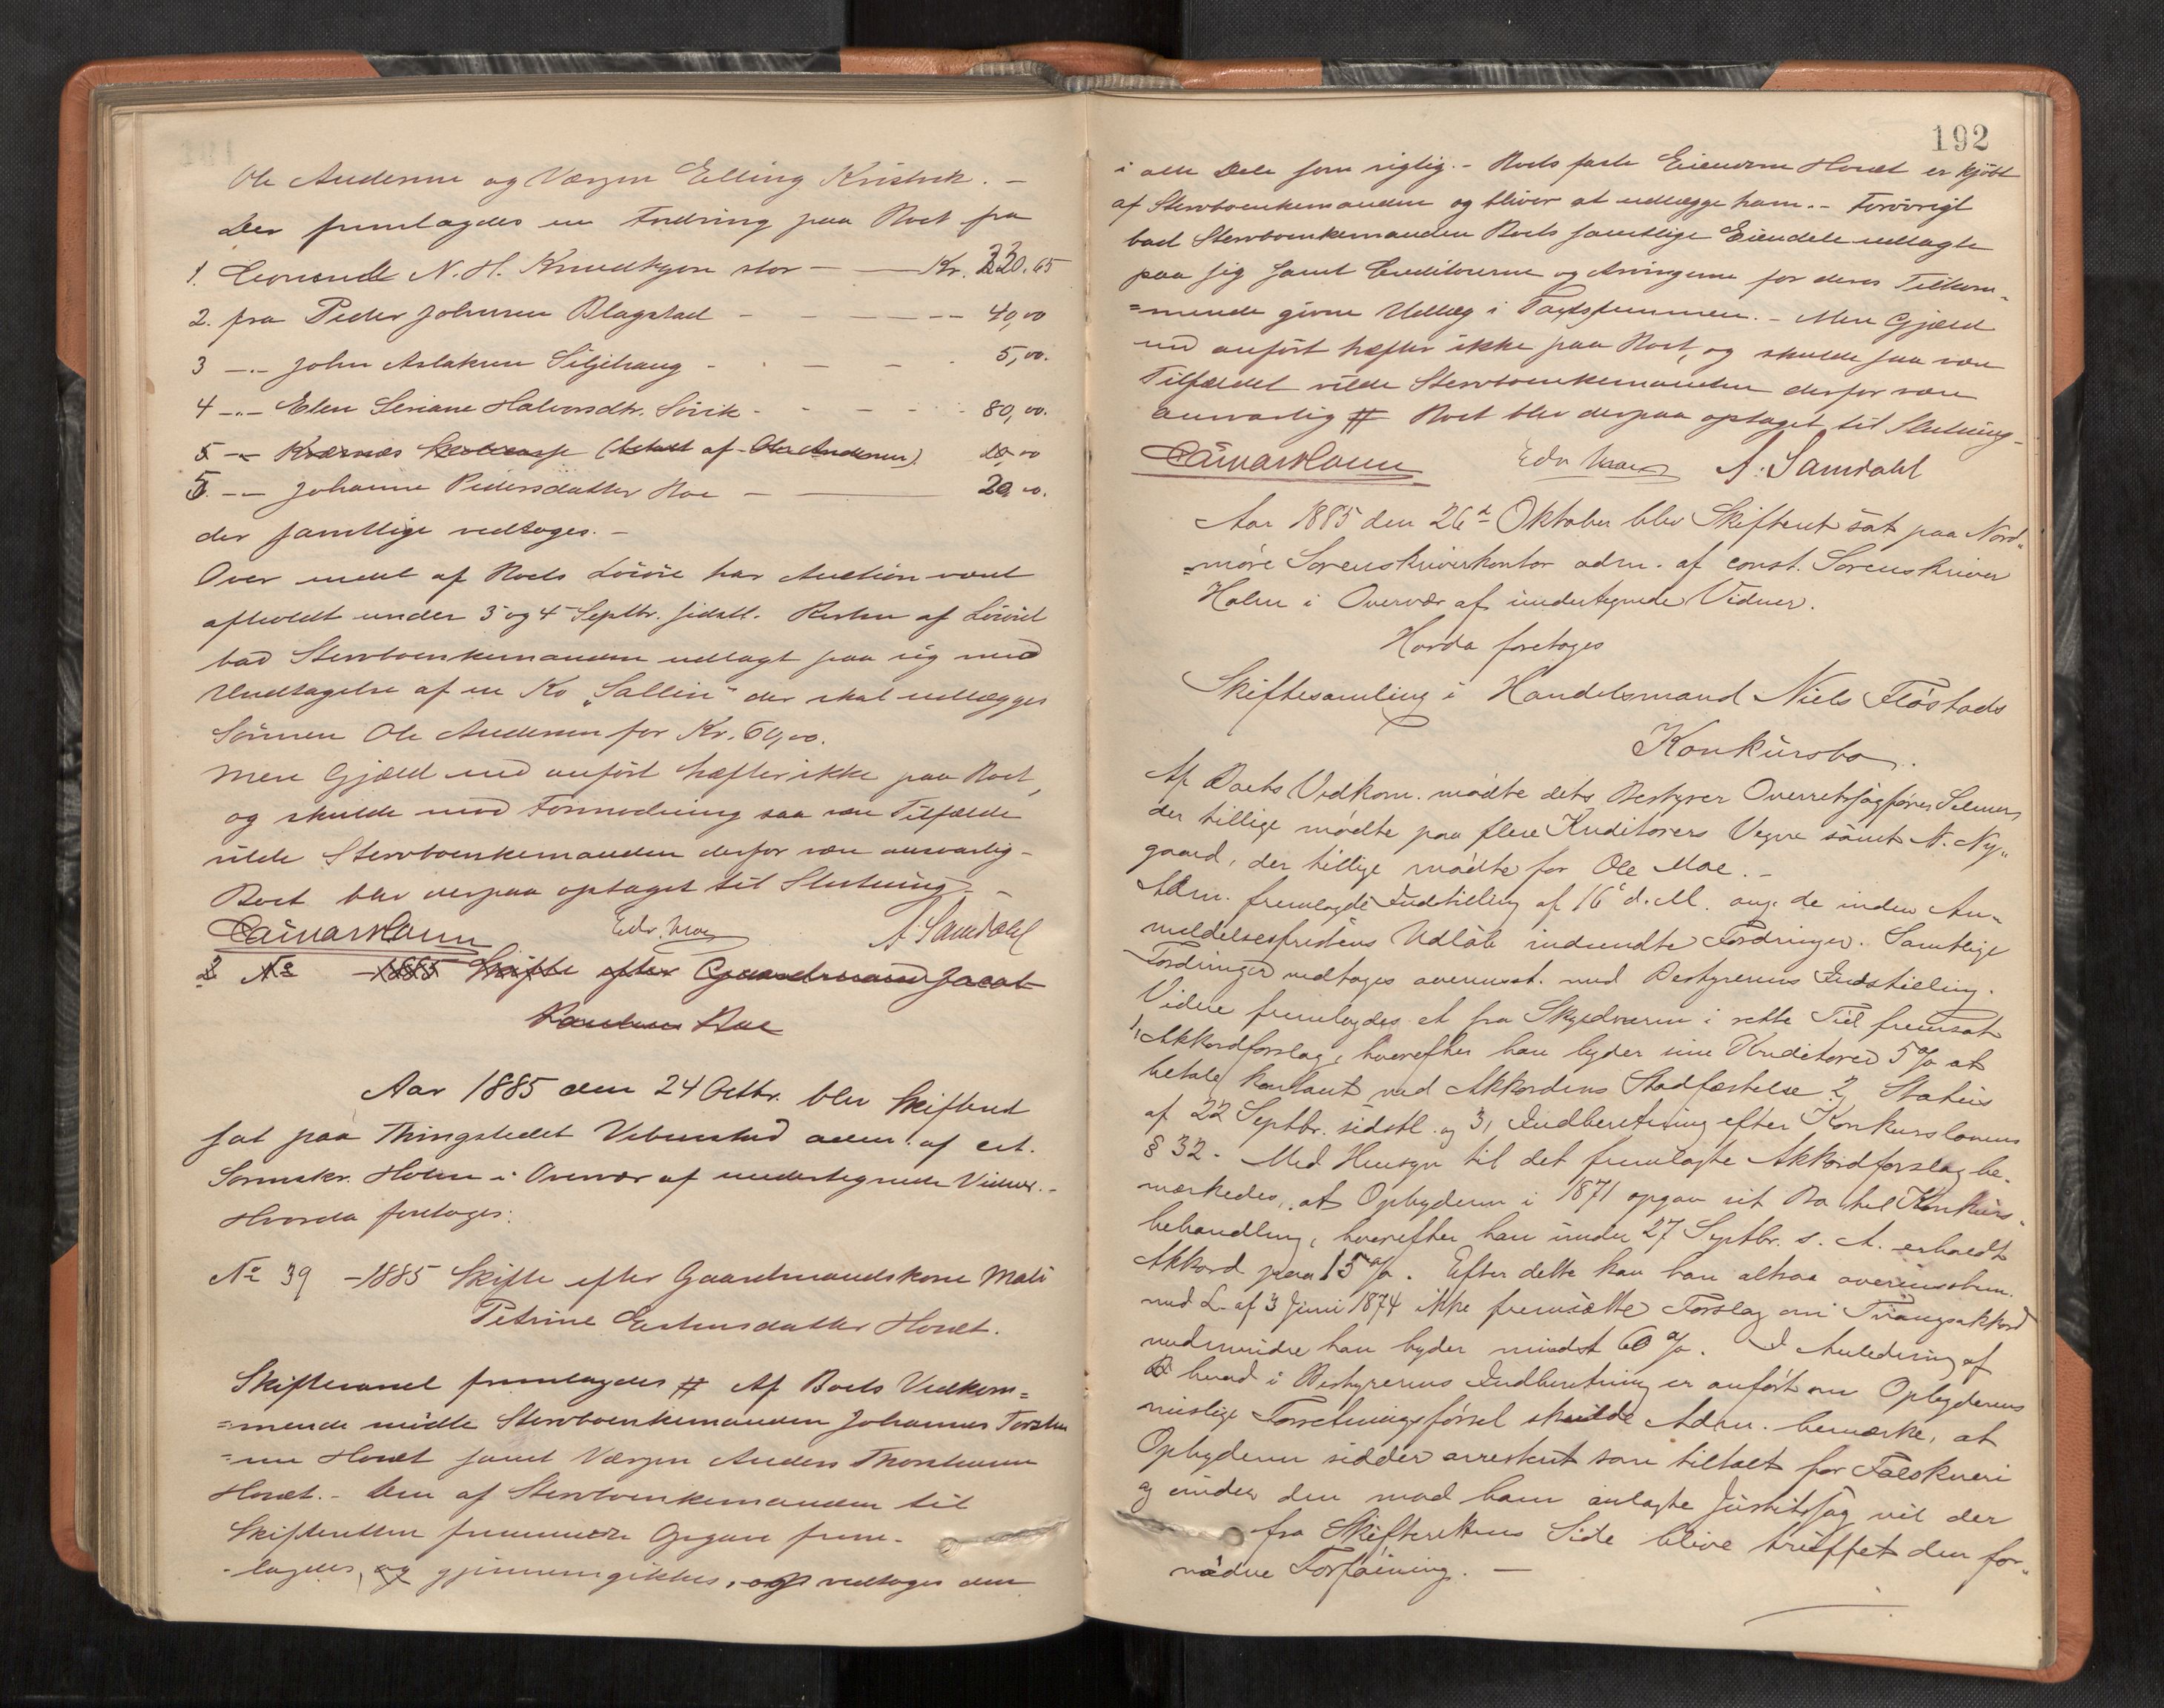 192
Ole Andersen og Værgen Elling Kristvik. –
Der fremlagdes en Fordring paa Boet fra
1. N. H. Knudtzon stor – — Kr. 220.65
2. fra Peder Johnsen Blagstad - - - - - 40,00
3 –„– John Aslaksen Siljehaug - - - - 5,00.
4 –„– Elen Seriane Halvorsdtr. Sivik - - - - 80,00.
5 –„– Kværnæs (betalt af Ole Andersen) 20,00
5. –„– Johanne Pedersdatter Boe – — 20,00.
der samtlige vedtoges. –
Over endel af Boets Løsøre har Auction været
afholdt under 3 og 4 Septbr. sidstl. Resten af Løsøret
bad Stervboenkemanden udlagt paa sig med
Undtagelse af en Ko „Sallin“ der skal udlægges
Sønnen Ole Andersen for Kr. 60,00.
Mere Gjæld end anført hæfter ikke paa Boet,
og skulde mod Formodning saa være Tilfælde
vilde Stervboenkemanden derfor være ansvarlig –
Boet blev derpaa optaget til Slutning. –
Edv. Moe A. Samdahl
2 No – 1885 Skifte efter Gaardmand Jacob
Boe
Aar 1885 den 24 Octbr. blev Skifteret
sat paa Thingstedet Vebenstad adm. af cst.
Sorenskr. Holm i Overvær af undertegnede Vidner. –
Hvorda foretoges:
No 39 – 1885 Skifte efter Gaardmandskone Mali
Petrine Estensdatter Honæt.
Skifteranet fremlagdes # Af Boets Vedkom=
=mende mødte Stervboenkemanden Johannes Torsten
=sen Honæt samt Værgen Anders Thorstensen
Honæt. – Den af Stervboenkemanden til
Skifteretten fremmede Opgave frem-
-lagdes, og gjennemgikkes, og vedtoges den
i alle Dele som rigtig. – Boets faste Eiendom Honæt er kjøbt
af Stervboenkemanden og bliver at udlægge ham. – Forøvrigt
bad Stervboenkemanden Boets samtlige Eiendele udlagte
paa sig samt Creditorerne og Arvingerne for deres Tilkom-
=mende givne Udlæg i Taxtsummen. – Mere Gjæld
end anført hæfter ikke paa Boet, og skulde saa være
Tilfældet vilde Stervboenkemanden derfor være
ansvarlig # Boet blev derpaa optaget til Slutning –
Edv Moe A. Samdahl
Aar 1885 den 26de Oktober blev Skifteret sat paa Nord„
„møre Sorenskriverkontor adm. af const. Sorenskriver
Holm i Overvær af undertegnede Vidner.
Hvorda foretoges
Skiftesamling i Handelsmand Niels Fløstads
Konkursbo.
Af Boets Vedkom. mødte dets Bestyrer Overretssagfører Selmer,
der tillige mødte paa flere Kreditorers Vegne samt N. Ny„
gaard, der tillige mødte for Ole Moe. –
Adm. fremlagde Indstilling af 16de d. M. ang. de inden An„
meldelsesfristens Udløb indsendte Fordringer. Samtlige
Fordringer vedtoges overensst. med Bestyrerens Indstilling.
Videre fremlagdes et fra Skyldneren i rette Tid fremsat
1, Akkordforslag, hvorefter han byder sine Kreditorer 5 % at
betale kontant ved Akkordens Stadfæstelse 2, Status
af 22 Septbr. sidstl. og 3, Indberetning efter Konkurslovens
§ 32. Med Hensyn til det fremlagte Akkordforslag be„
mærkedes, at Opbyderen i 1871 opgav sit Bo til Konkurs„
behandling, hvorefter han under 27 Septbr. s. A. erholdt
Akkord paa 15 %. Efter dette kan han altsaa overensstem.
med L. af 3 Juni 1874 ikke fremsætte Forslag om Tvangsakkord
medmindre han byder mindst 60 %. I Anledning af
hvad i Bestyrerens Indberetning er anført om Opbyderens
mislige Forretningsførsel skulde Adm. bemærke, at
Opbyderen sidder arresteret som tiltalt for Falskneri
og under den mod ham anlagte Justitssag vil der
fra Skifterettens Side blive truffet den for„
nødne Forføining. –